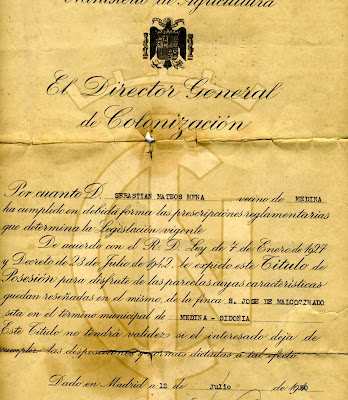 Ministerio de Agricultura
El Director General
de Colonización
Por cuanto D. SEBASTIAN MATEOS MENA vecino de MEDINA
ha cumplido en debida forma las prescripciones reglamentarias
que determina la Legislación vigente
De acuerdo con el R. D. Ley de 7 de Enero de 1927
y Decreto de 23 de Julio de 1942, le expido este Título de
Posesión para disfrute de las parcelas cuyas características
quedan reseñadas en el mismo, de la finca S. JOSE DE MALCOCINADO
sita en el término municipal de MEDINA - SIDONIA
Este Título no tendrá validez si el interesado deja de
cumplir las disposiciones y normas dictadas a tal efecto.
Dado en Madrid a 12 de Julio de